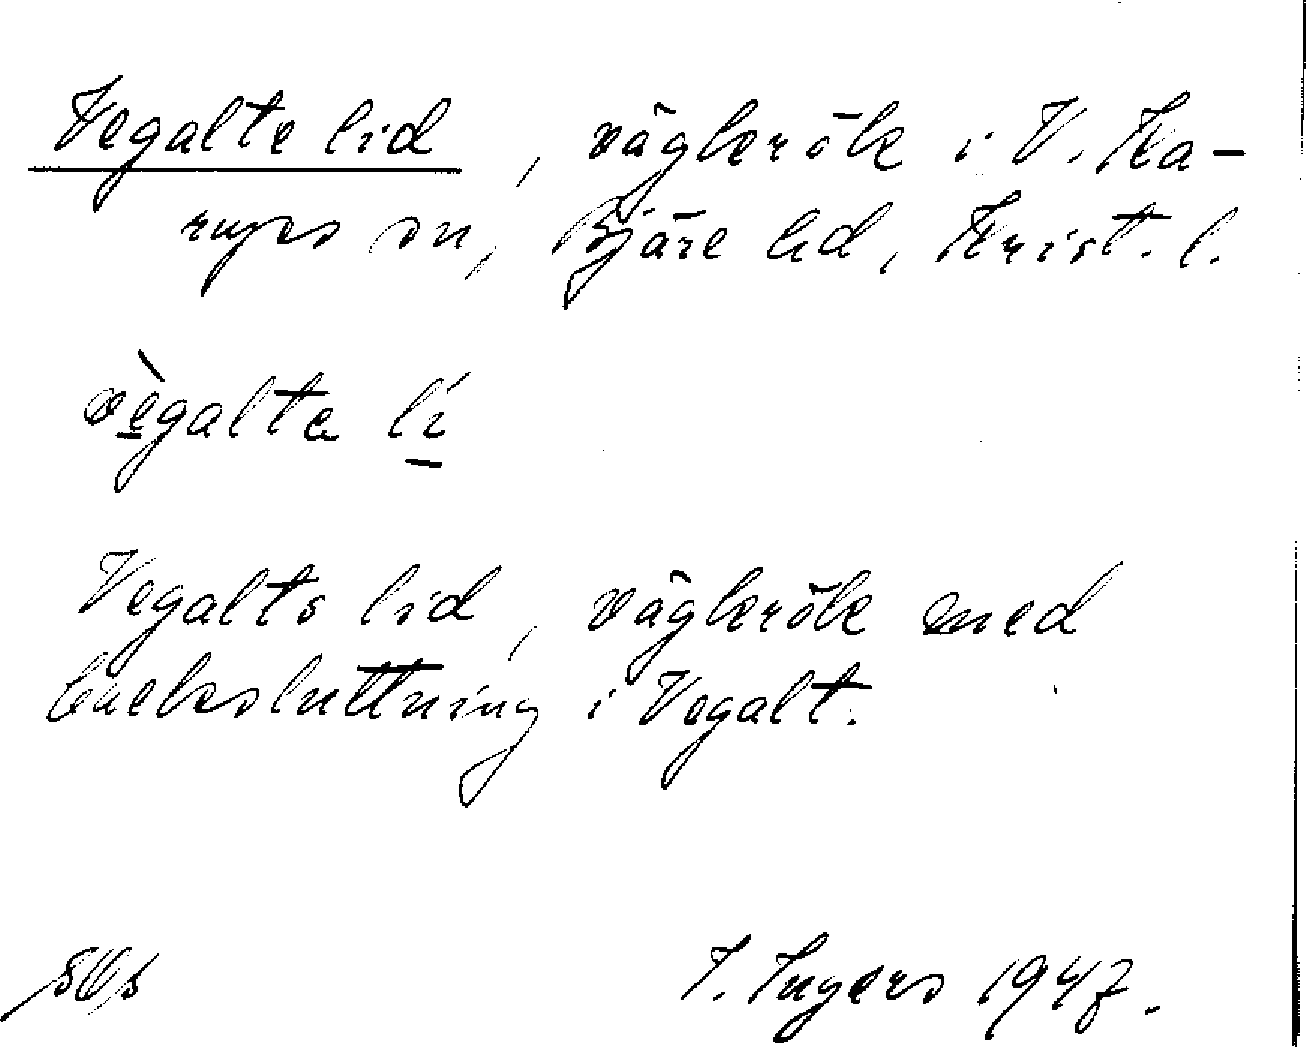 Vegalte lid, vägkrök i V. Ka-
rups sn, Bjäre hd, Krist. l.
vègalta lí
Vegalts lid, vägkrök med
backsluttning i Vegalt.
I. Ingers 1947.